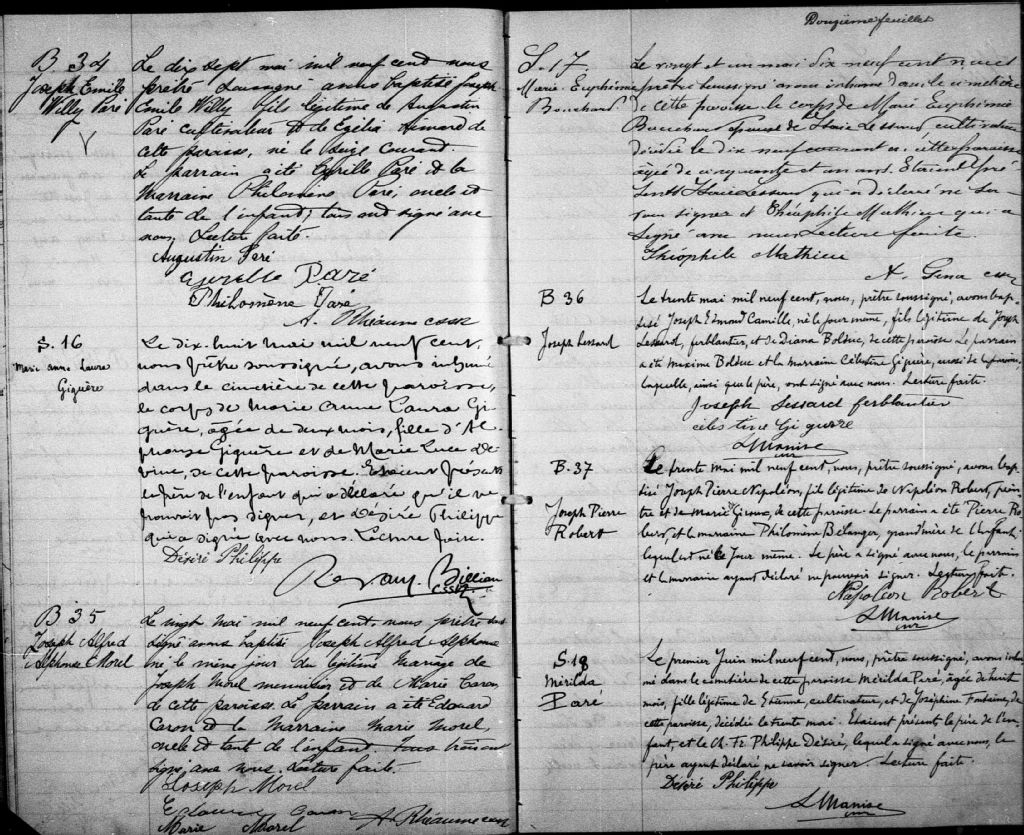 B 34
Joseph Emile
Willy Paré
Le dix sept mai mil neuf cent nous
prêtre soussigné avons baptisé Joseph
Emile Willy fils légitime de Augustin
Paré cultivateur et de Egélia Aimard de
cette paroisse, né le seize courant.
Le parrain a été Cyrille Paré et la
Marraine Philomène Paré, oncle et
tante de l'enfant; tous ont signé avec
nous, Lecture faite.
Augustin Paré
Cyrille Paré
Philomène Paré
A. Rhéaume cssr
S. 16
Marie Anne Laura
Giguère
Le dix-huit mai mil neuf cent,
nous prêtre soussigné, avons inhumé
dans le cimetière de cette paroisse,
le corps de Marie Anne Laura Gi
guère, âgée de deux mois, fille d'Al
phonse Giguère et de Marie Luce De
vine, de cette paroisse. Etaient présents
le père de l'enfant qui a déclaré qu'il ne
pouvait pas signer, et Désiré Philippe
qui a signé avec nous. Lecture faite.
Désiré Philippe
Billiau
cssr
B 35
Joseph Alfred
Alphonse Morel
Le vingt mai mil neuf cent, nous prêtre sous
signé avons baptisé Joseph Alfred Alphonse
né le même jour du légitime mariage de
Joseph Morel menuisier et de Marie Caron
de cette paroisse. Le parrain a été Edouard
Caron et la Marraine Marie Morel,
oncle et tante de l'enfant. Tous trois ont
signé avec nous. Lecture faite.
Joseph Morel
Edouard Caron
Marie Morel A. Rhéaume cssr
Douzième feuillet
S. 17
Marie Euphémie
Bouchard
Le vingt et un mai dix neuf cent nous
prêtre soussigné avons inhumé dans le cimetière
de cette paroisse le corps de Marie Euphémie
Bouchard épouse de Lessard, cultivateur
décédée le dix neuf courant en cette paroisse
âgée de cinquante et un ans. Etaient pré
sents Lessard qui a déclaré ne sa-
voir signer et Théophile Mathieu qui a
signé avec nous Lecture faite.
Théophile Mathieu
A. cssr
B 36
Joseph Lessard
Le trente mai mil neuf cent, nous, prêtre soussigné, avons bap-
tisé Joseph Edmond Camille, né le jour même, fils légitime de Joseph
Lessard, ferblantier, et de Diana Bolduc, de cette paroisse. Le parrain
a été Maxime Bolduc et la marraine Célestine Giguère,
laquelle, ainsi que le père, ont signé avec nous. Lecture faite.
Joseph Lessard ferblantier
célestine Giguere
L Manise
cssr
B. 37
Joseph Pierre
Robert
Le trente mai mil neuf cent, nous, prêtre soussigné, avons bap
tisé Joseph Pierre Napoléon, fils légitime de Napoléon Robert, pein
tre et de Marie Giroux, de cette paroisse. Le parrain a été Pierre Ro
bert, et la marraine Philomène Bélanger, grand'mère de l'enfant
lequel est né le jour même. Le père a signé avec nous, le parrain
et la marraine ayant déclaré ne pouvoir signer. Lecture faite.
Napoléon Robert
L Manise
cssr
S 18
Mérilda
Paré
Le premier Juin mil neuf cent, nous, prêtre soussigné, avons inhu
mé dans le cimetière de cette paroisse Mérilda Paré, âgée de huit
mois, fille légitime de Etienne, cultivateur, et de Joséphine Fontaine, de
cette paroisse, décédée le trente mai. Etaient présents le père de l'en
fant, et le Ch. Fr. Philippe Désiré, lequel a signé avec nous, le
père ayant déclaré ne savoir signer. Lecture faite.
Désiré Philippe
L Manise
cssr